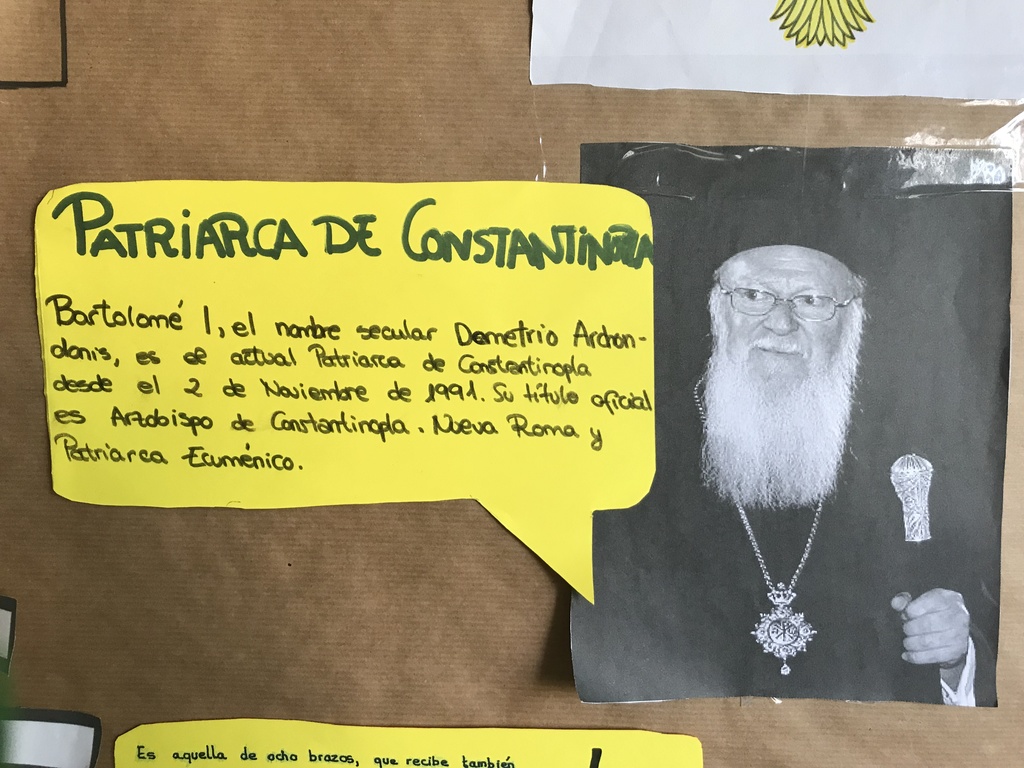 PATRIARCA DE CONSTANTINOPLA
Bartolomé I, el nombre secular Demetrio Archon-
donis, es el actual Patriarca de Constantinopla
desde el 2 de Noviembre de 1991. Su título oficial
es Arzobispo de Constantinopla. Nueva Roma y
Patriarca Ecuménico.
Es aquella de ocho brazos, que recibe también